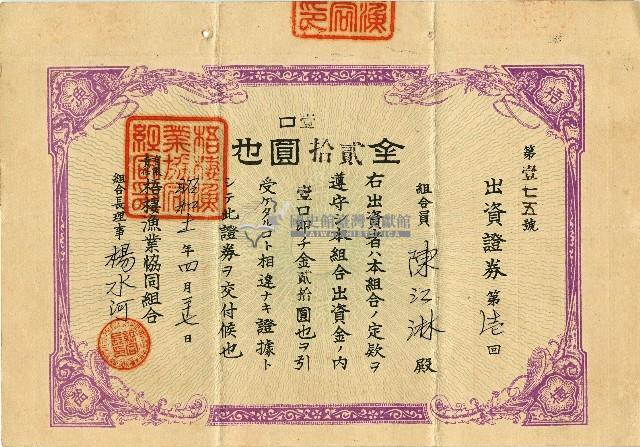 第壹七五號
出資證券 第壱回
組合員 陳江淋 殿
壹口
金貳拾圓也
右出資者ハ本組合ノ定款ヲ
遵守シ本組合出資金ノ内
壹口即チ金貳拾圓也ヲ引
受ケタルコト相違ナキ證據ト
シテ此證券ヲ交付候也
昭和十一年四月二十七日
梧棲漁業協同組合
組合長理事 楊水河
梧棲漁
業協同
組合
國史館臺灣文獻館
TAIWAN HISTORICA